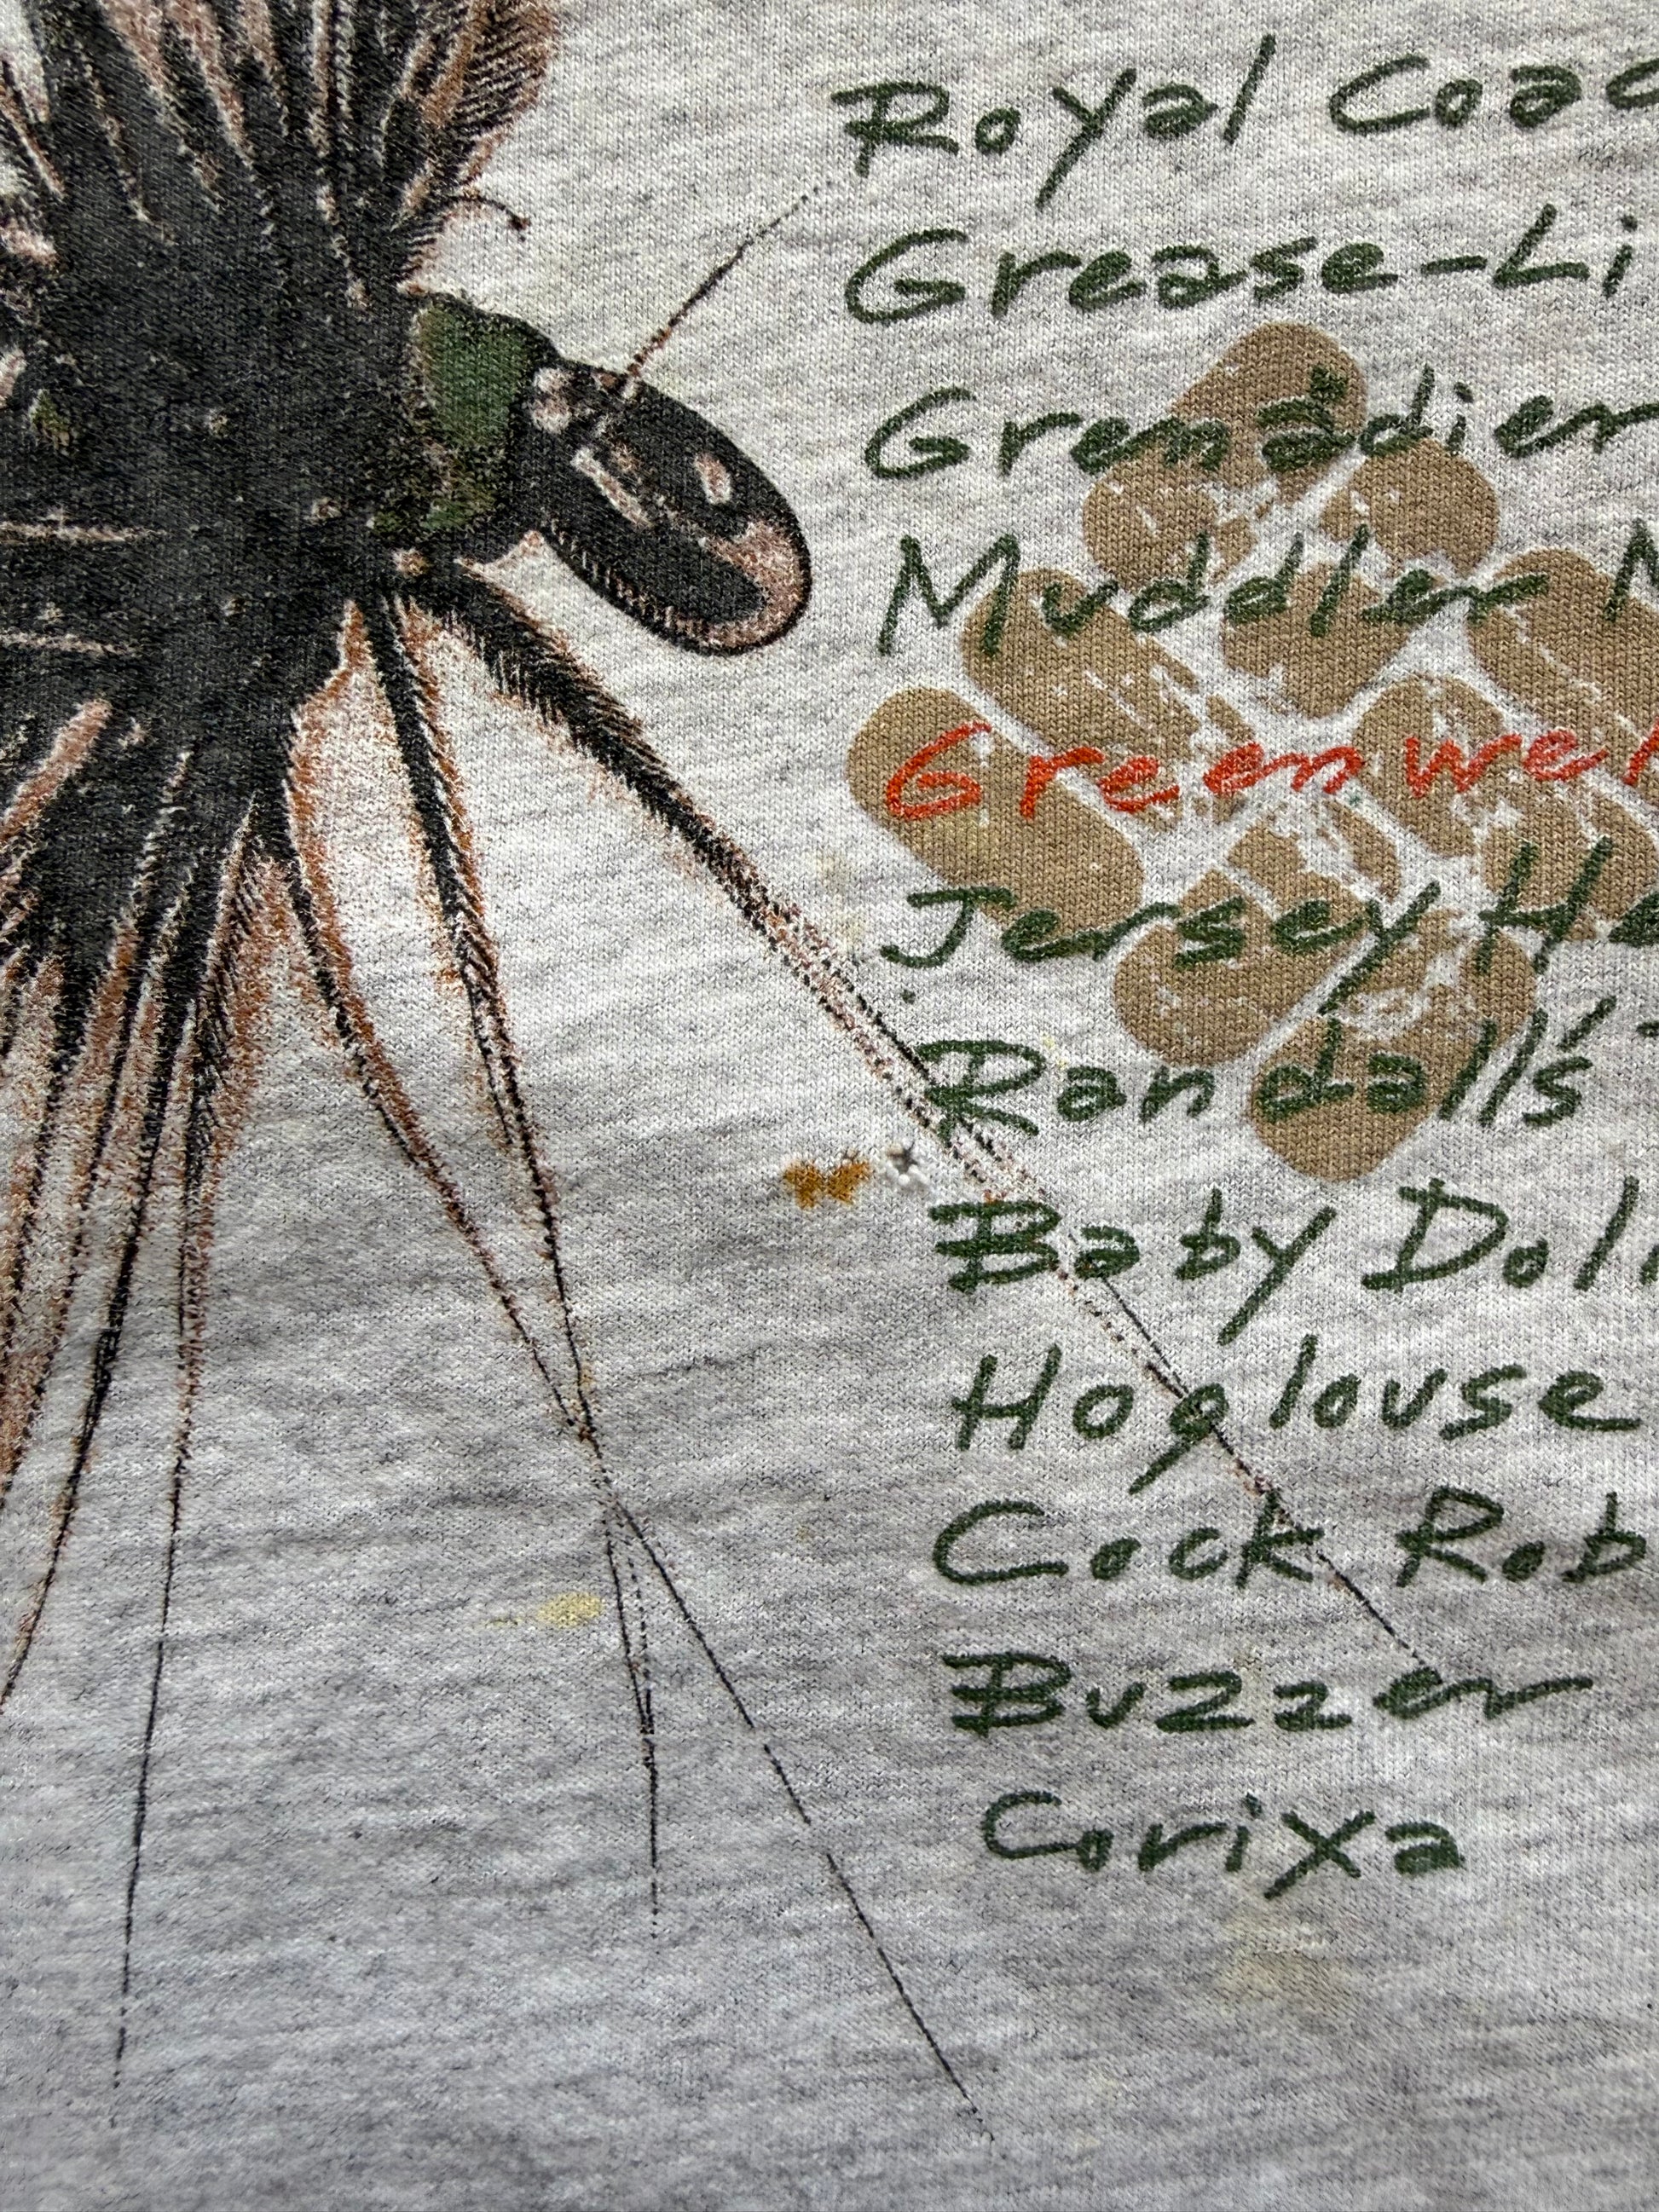 Royal Coac
Grease-Li
Grenadier
Muddler M
Greenwel
Jersey He
Randall's
Baby Dol
Hoglouse
Cock Rob
Buzzer
Corixa